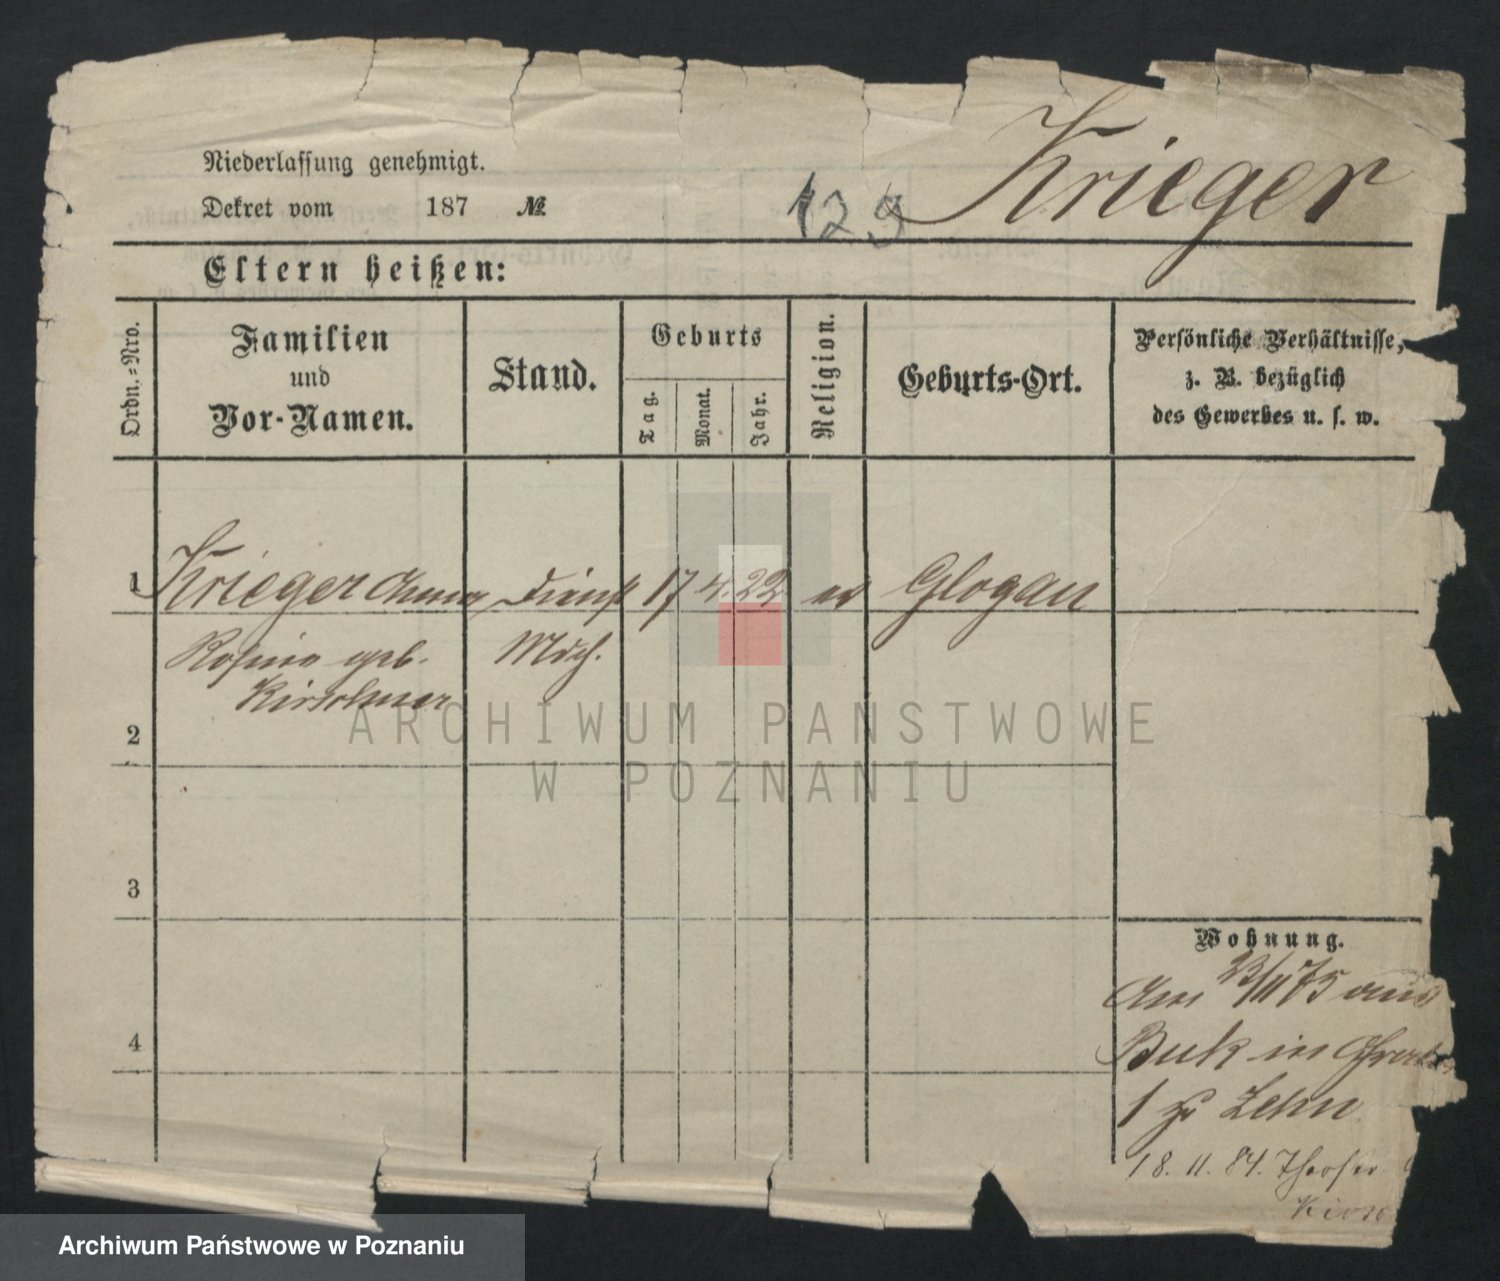 Krieger
Niederlassung genehmigt.
Dekret vom 187 №
129
Eltern heißen:
Ordn.-Nro.
Familien
und
Vor-Namen.
Stand.
Geburts
Tag.
Monat.
Jahr.
Religion.
Geburts-Ort.
Persönliche Verhältnisse,
z. B. bezüglich
des Gewerbes u. s. w.
1 Krieger Anna Dienst 17 4. 22 ev Glogau
Rosina geb. Mdch.
Kirschner
2
3
4
Wohnung.
Am 23/11 75 aus
Buk in
1 zu Zehn
18. 11. 84.
ARCHIWUM PANSTWOWE
W POZNANIU
Archiwum Państwowe w Poznaniu